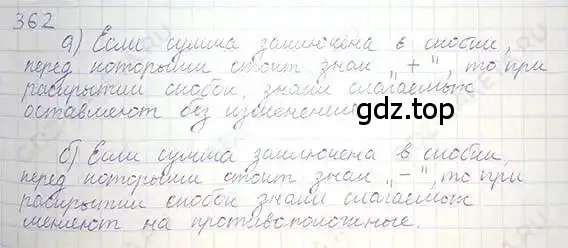 362
а) Если сумма заключена в скобки,
перед которыми стоит знак „+“, то при
раскрытии скобок, знаки слагаемых
оставляют без изменений
gdz.top
б) Если сумма заключена в скобки,
перед которыми стоит знак „-“, то при
раскрытии скобок знаки слагаемых
меняют на противоположные.